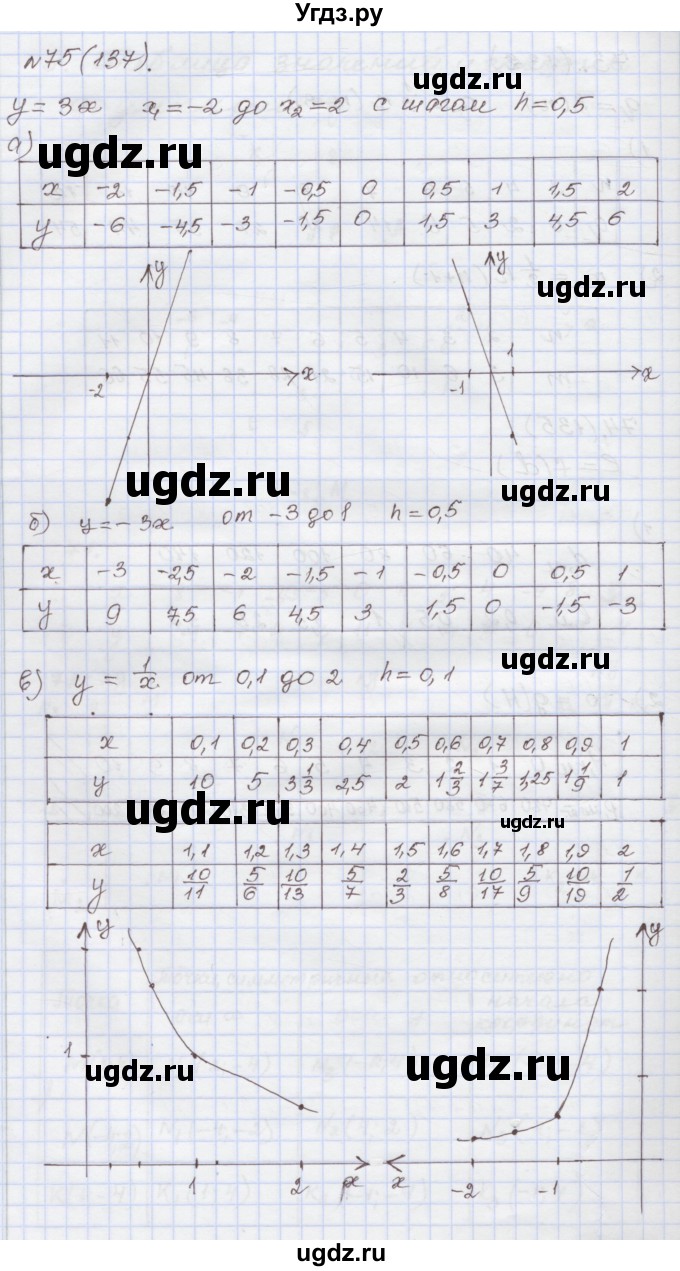 Угдз.ру
№75(137).
y = 3x x₁ = -2 до x₂ = 2 с шагом h = 0,5
ugdz.ru
а)
ugdz.ru
x -2 -1,5 -1 -0,5 0 0,5 1 1,5 2
y -6 -4,5 -3 -1,5 0 1,5 3 4,5 6
y y
ugdz.ru
1
-2 x -1 x
ugdz.ru ugdz.ru
б) y = -3x от -3 до 1 h = 0,5
x -3 -2,5 -2 -1,5 -1 -0,5 0 0,5 1
y 9 7,5 6 4,5 3 1,5 0 -1,5 -3
ugdz.ru
в) y = 1/x от 0,1 до 2 h = 0,1
x 0,1 0,2 0,3 0,4 0,5 0,6 0,7 0,8 0,9 1
y 10 5 3 1/3 2,5 2 1 2/3 1 3/7 1,25 1 1/9 1
ugdz.ru ugdz.ru
x 1,1 1,2 1,3 1,4 1,5 1,6 1,7 1,8 1,9 2
y 10/11 5/6 10/13 5/7 2/3 5/8 10/17 5/9 10/19 1/2
y y
1
ugdz.ru ugdz.ru
1 2 x x -2 -1
ugdz.ru ugdz.ru
ugdz.ru